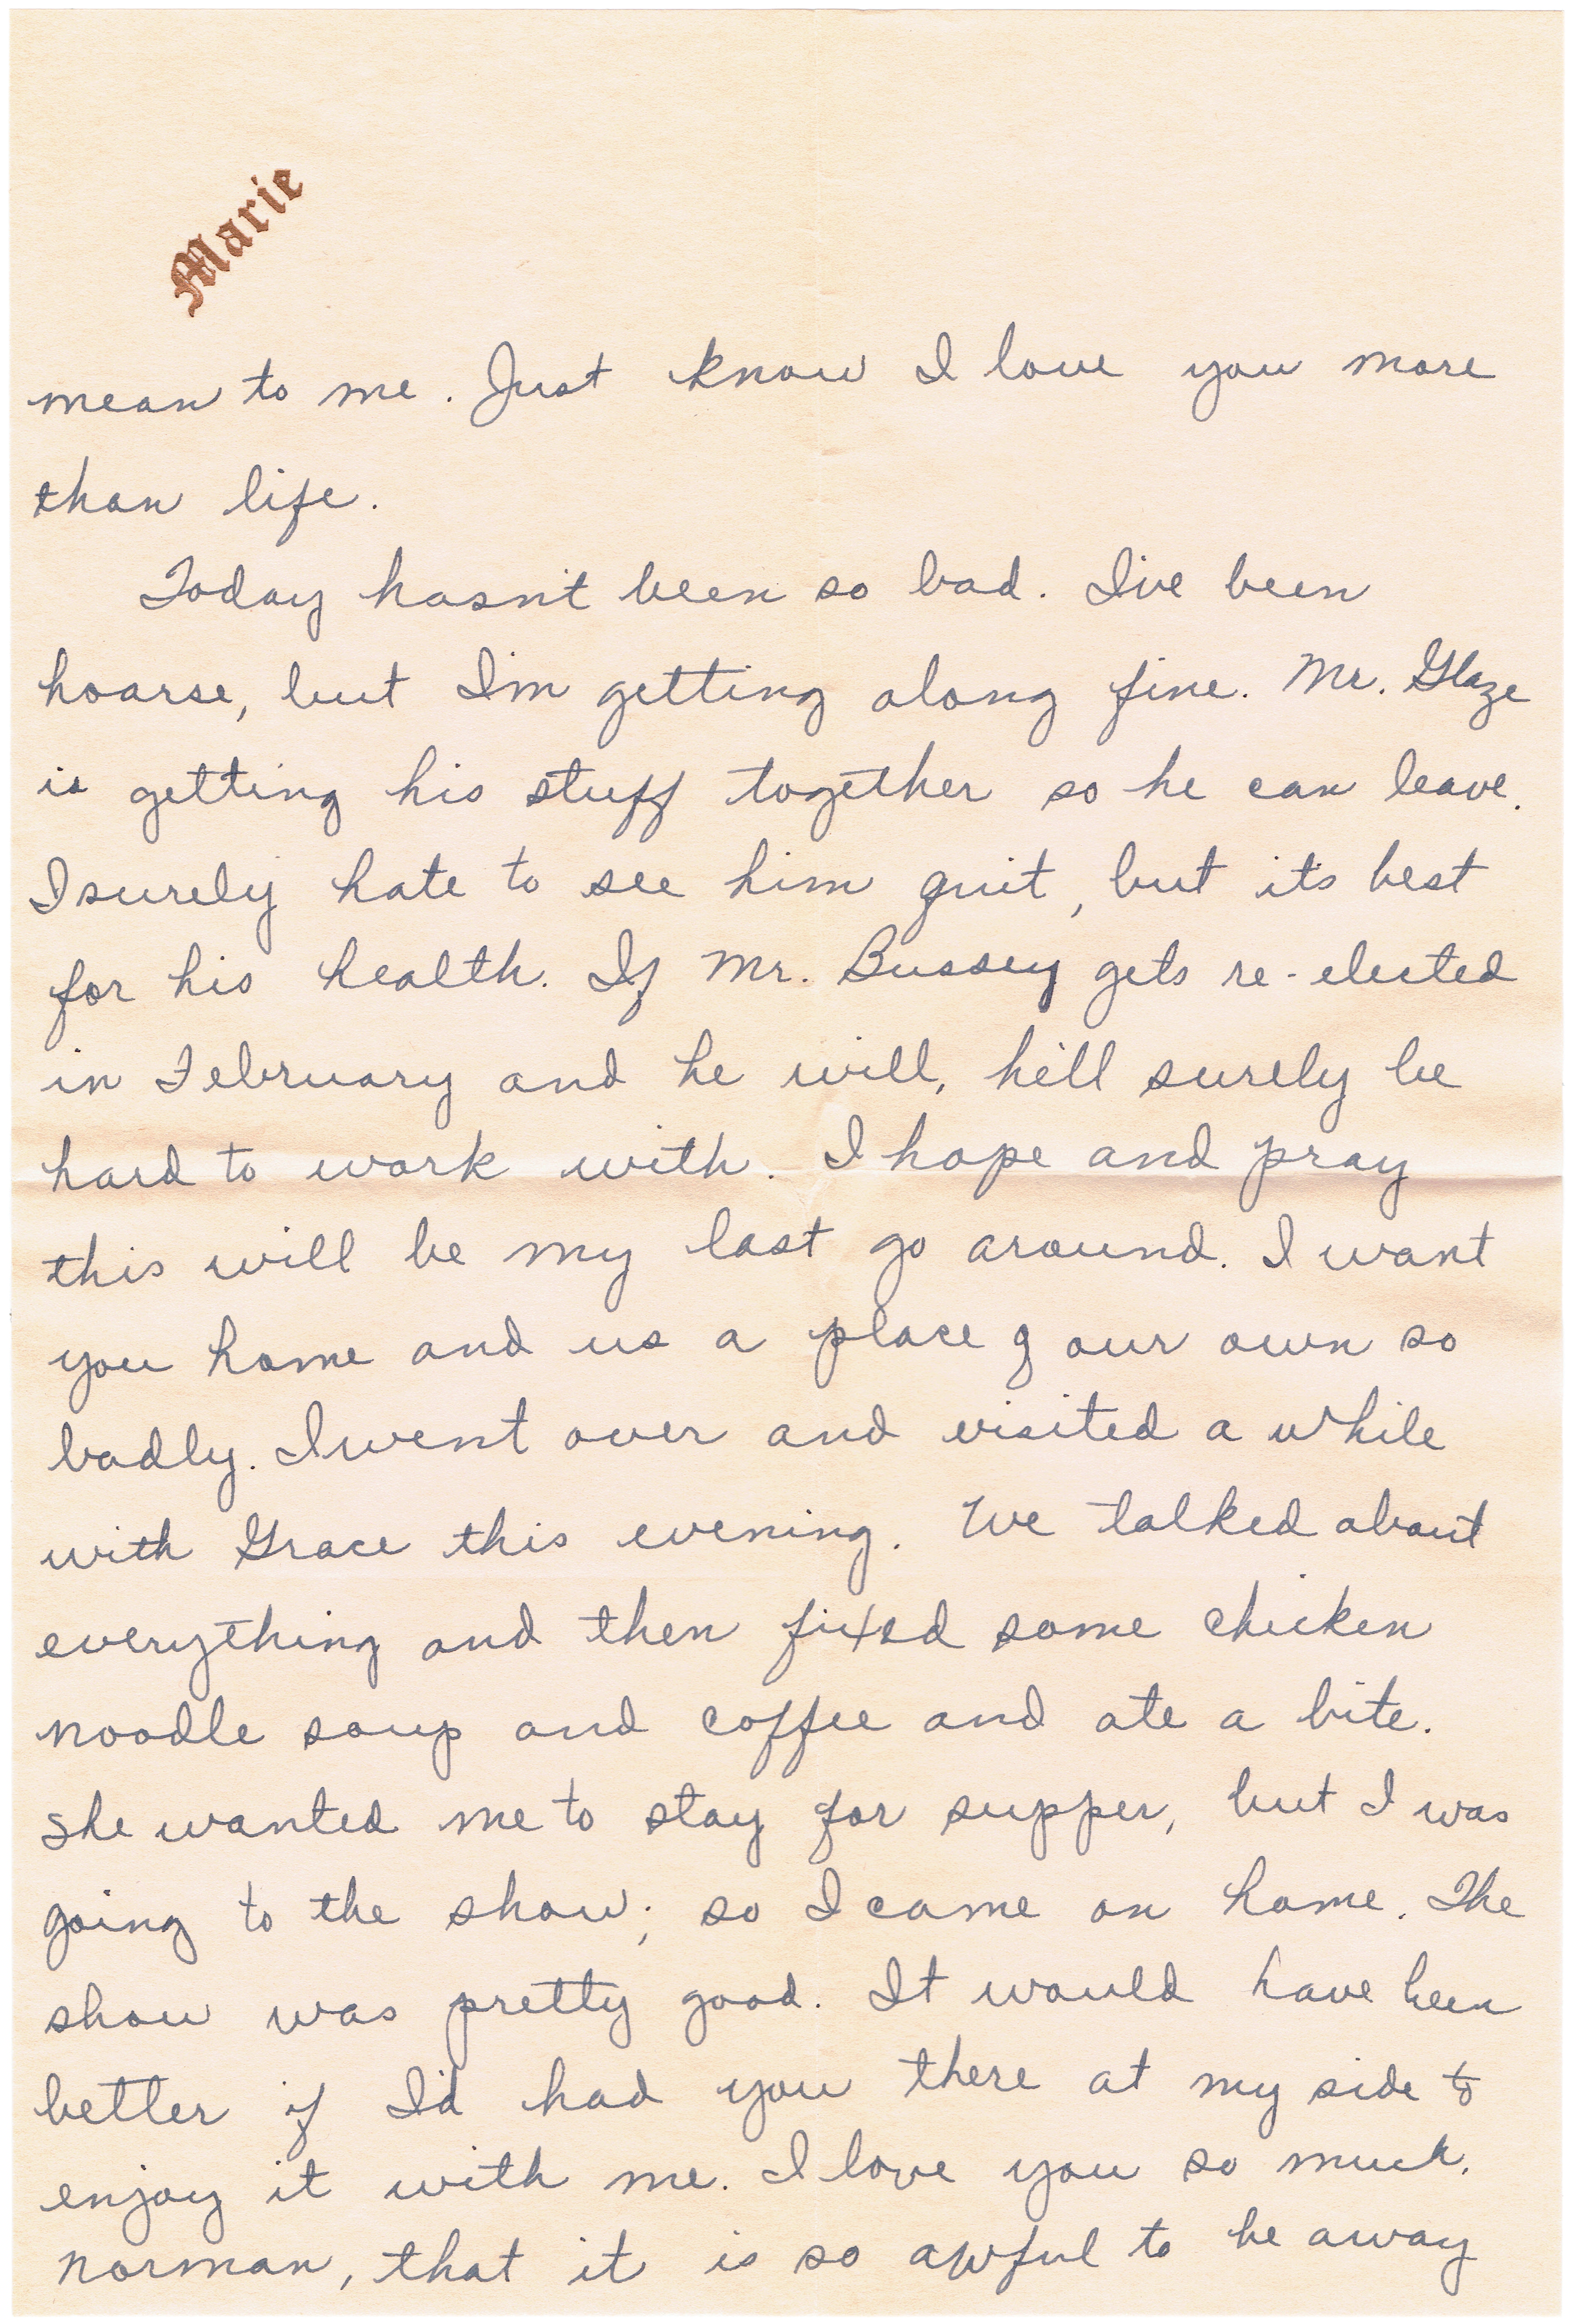 Marie
mean to me. Just know I love you more
than life.
Today hasn't been so bad. I've been
hoarse, but I'm getting along fine. Mr. Glaze
is getting his stuff together so he can leave.
I surely hate to see him quit, but its best
for his health. If Mr. Bussey gets re-elected
in February and he will, he'll surely be
hard to work with. I hope and pray
this will be my last go around. I want
you home and us a place of our own so
badly. I went over and visited a while
with Grace this evening. We talked about
everything and then fixed some chicken
noodle soup and coffee and ate a bite.
She wanted me to stay for supper, but I was
going to the show; so I came on home. The
show was pretty good. It would have been
better if I'd had you there at my side to
enjoy it with me. I love you so much,
Norman, that it is so awful to be away